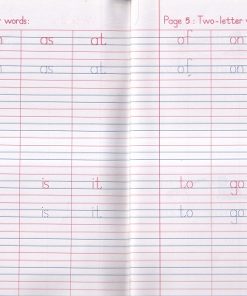 words:
as at
as at
is it
is it
Page 5 : Two-letter
of on
of on
to go
to go